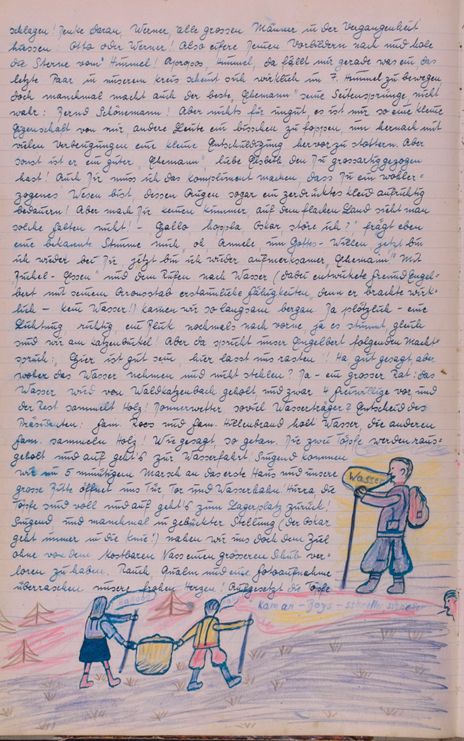 schlagen! Denke daran, Werner, alle grossen Männer in der Vergangenheit
hiessen: Otto oder Werner! Also eifere Deinen Vorbildern nach und hole
die Sterne vom Himmel! Apropos, Himmel, da fällt mir gerade was ein, das
letzte Paar in unserem Kreis scheint sich wirklich im 7. Himmel zu bewegen
doch manchmal macht auch der beste "Ehemann" seine Seitensprünge nicht
wahr: Bernd Schönemann! Aber nichts für ungut, es ist mir so eine kleine
Eigenschaft von mir, andere Leute ein bisschen zu foppen, um hernach mit
vielen Verbeugungen eine kleine Entschuldigung hervor zu stottern. Aber
sonst ist er ein guter "Ehemann", liebe den Du grossartig gezogen
hast! Auch Dir muss ich das Kompliment machen, dass Du ein wohler-
zogenes Wesen bist, dessen Augen sogar ein zerdrücktes Kleid aufrichtig
bedauern! Aber mach Dir keinen Kummer, auf dem flachen Land sieht man
solche Falten nicht! - Hallo hoppla Oskar störe ich? frägt eben
eine bekannte Stimme mich, ob Annele um Gottes-Willen jetzt bin
ich wieder bei Dir jetzt bin ich wieder aufmerksamer "Ehemann"! Mit
und dem Rufen nach Wasser (dabei entwickelte Freund Engel-
bert mit seinem erstaunliche Fähigkeiten, denn er brachte wirk-
lich - kein Wasser!) kamen wir so langsam bergan. Ja plötzlich - eine
Lichtung richtig, ein Blick nochmals nach vorne, ja es stimmt, gleich
sind wir am Katzenbuckel! Aber da spricht unser Engelbert folgenden Macht-
spruch: "Hier ist gut sein hier lasst uns rasten"! Ha gut gesagt, aber
woher das Wasser nehmen und nicht stehlen? Ja - ein grosser Rat: das
Wasser wird von Waldkatzenbach geholt und zwar 4 freiwillige vor und
der Rest sammelt Holz! Donnerwetter, soviel Wasserträger? Entscheid des
Präsidenten: Fam. Roos und Fam. Hillenbrand holt Wasser, die anderen
Fam. sammeln Holz! Wie gesagt, so getan. Die zwei Töpfe werden raus-
geholt und auf geht's zur Wasserfahrt. Singend kommen
wir im 5 minütigem Marsch an das erste Haus und unsere
grosse Bitte öffnet uns Tür, Tor und Wasserhahn! Hurra, die
Töpfe sind voll und auf geht's zum Lagerplatz zurück!
Singend und manchmal in gebückter Stellung (der Oskar
geht immer in die Knie!) nahen wir uns doch dem Ziel
ohne von dem kostbaren Nass einen grösseren Schub ver-
loren zu haben. Rauch, Qualm und eine Fotoaufnahme
überraschen unsere frohen Herzen! Aufgesetzt die Töpfe
Wasser